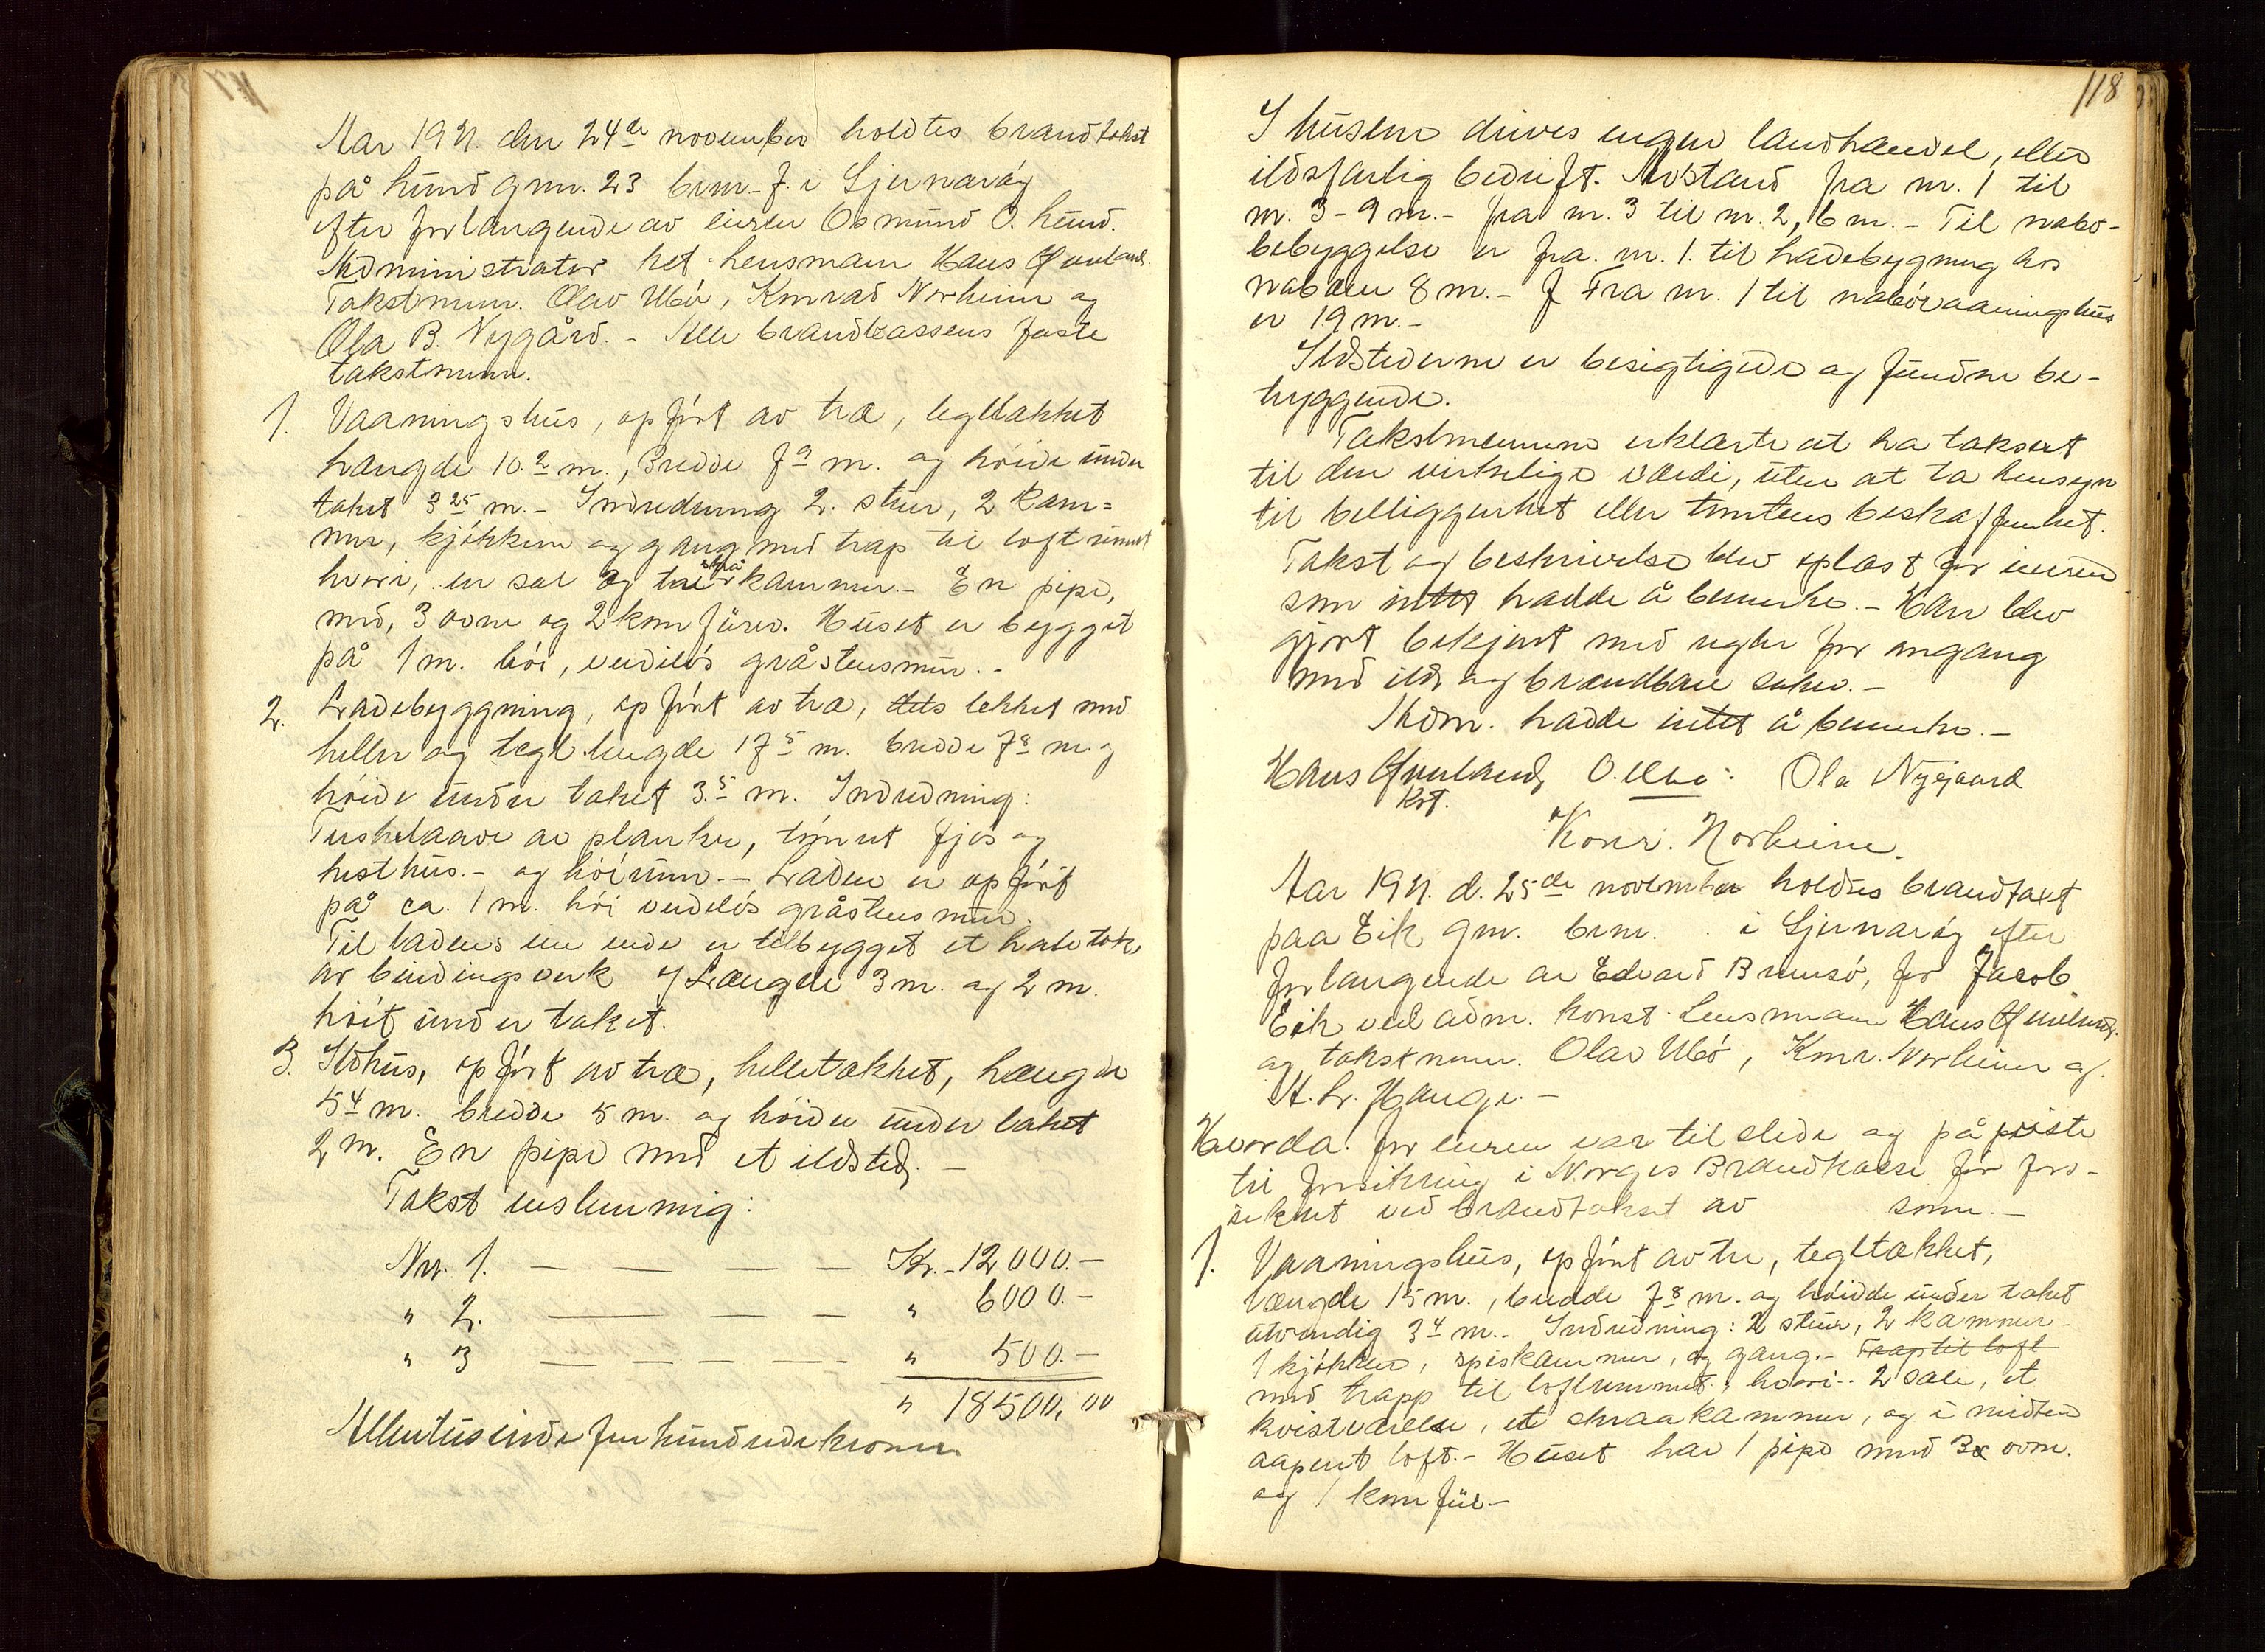 Aar 1921. den 24de november holdtes brandtakst
på hund gnr. 23 brnr. 7. i Sjernarøy
efter forlangende av eieren Osmund O. hund.
Administrator kst. lensmann Hans Qvenland.
Takstmenn. Olav Ubø, Konrad Norheim og
Ola B. Nygård. - Alle brandkassens faste
takstmenn.
1. Vaaningshus, opført av træ, tegltækket
Længde 10.2 m., Bredde 7 9 m. og høide under
taket 3 25 m. - Indredning 2. stuer, 2 kam=
mer, kjøkken og gang med trap til loftrumet
hvori, en sal og tre skrå kammer. - En pipe,
med, 3 ovne og 2 komfürer. Huset er bygget
på 1 m. høi, verdiløs gråstensmur. -
2. Ladebyggning, opført av træ, dels tekket med
heller og tegl lengde 17 5 m. bredde 7 8 m. og
høide under taket 3.5 m. Indredning:
Treskelaave av planker, tømret fjøs og
hesthus. - og høirum. - Laden er opført
på ca. 1 m. høi verdiløs gråstens mur.
Til ladens ene ende er tilbygget et halvtak
av bindingsverk af Længde 3 m. og 2 m.
høit under taket.
3. Ildhus, opført av træ, helletækket, længde
5 4 m. bredde 5 m. og høide under taket
2 m. En pipe med et ildsted. -
Takst enstemmig:
Nr. 1. — — — — Kr. - 12000. -
" 2. — — — — " 6000. -
" 3 — — — — " 500. -
" 18500,00
Attentusinde fem hundrede kroner
118
I husene drives ingen landhandel, eller
ildsfarlig bedrift. Avstand fra nr. 1 til
nr. 3 - 9 m. - fra nr. 3 til nr. 2, 6 m. - Til nabo-
bebyggelse er fra. nr. 1. til ladebygning hos
naboen 8 m. - Fra nr. 1 til nabovaaningshus
er 19 m. -
Ildstederne er besigtigede og fundne be-
tryggende.
Takstmennene erklærte at ha taksert
til den virkelige værdi, uten at ta hensyn
til belliggenhet eller tomtens beskaffenhet.
Takst og beskrivelse blev oplæst for eieren
som intet hadde å bemerke. - Han blev
gjort bekjent med regler for omgang
med ild og brændbare saker. -
Adm. hadde intet å bemerke. -
Hans Qvenland O. Ubø. Ola Nygaard
Kst.
Konr. Norheim.
Aar 1921. d. 25de november holdtes brandtaxt
paa Eik gnr. brnr. i Sjernarøy efter
forlangende av Edvard Brunsø, for Jacob
Eik ved adm. konst. Lensmann Hans Qvenland.
og takstmenn. Olav Ubø, Konr. Norheim og
A. L. Hauge. -
Hvorda. for eieren var tilstede og påviste
til forsikring i Norges Brandkasse før for-
sikret ved brandtakst av som. -
1. Vaaningshus, opført av tre, tegltækket,
længde 15 m., bredde 7 8 m. og høidde under taket
utvendig 3 4 m. - Indredning: 2 stuer, 2 kammer -
1 kjøkken, spiskammer, og gang. - Trap til loft
med trapp til loftrummet, hvori. 2 sale, et
kvistværelse, et skraakammer, og i midten
aapent loft. - Huset har 1 pipe med 3 ovne.
og 1 komfür -